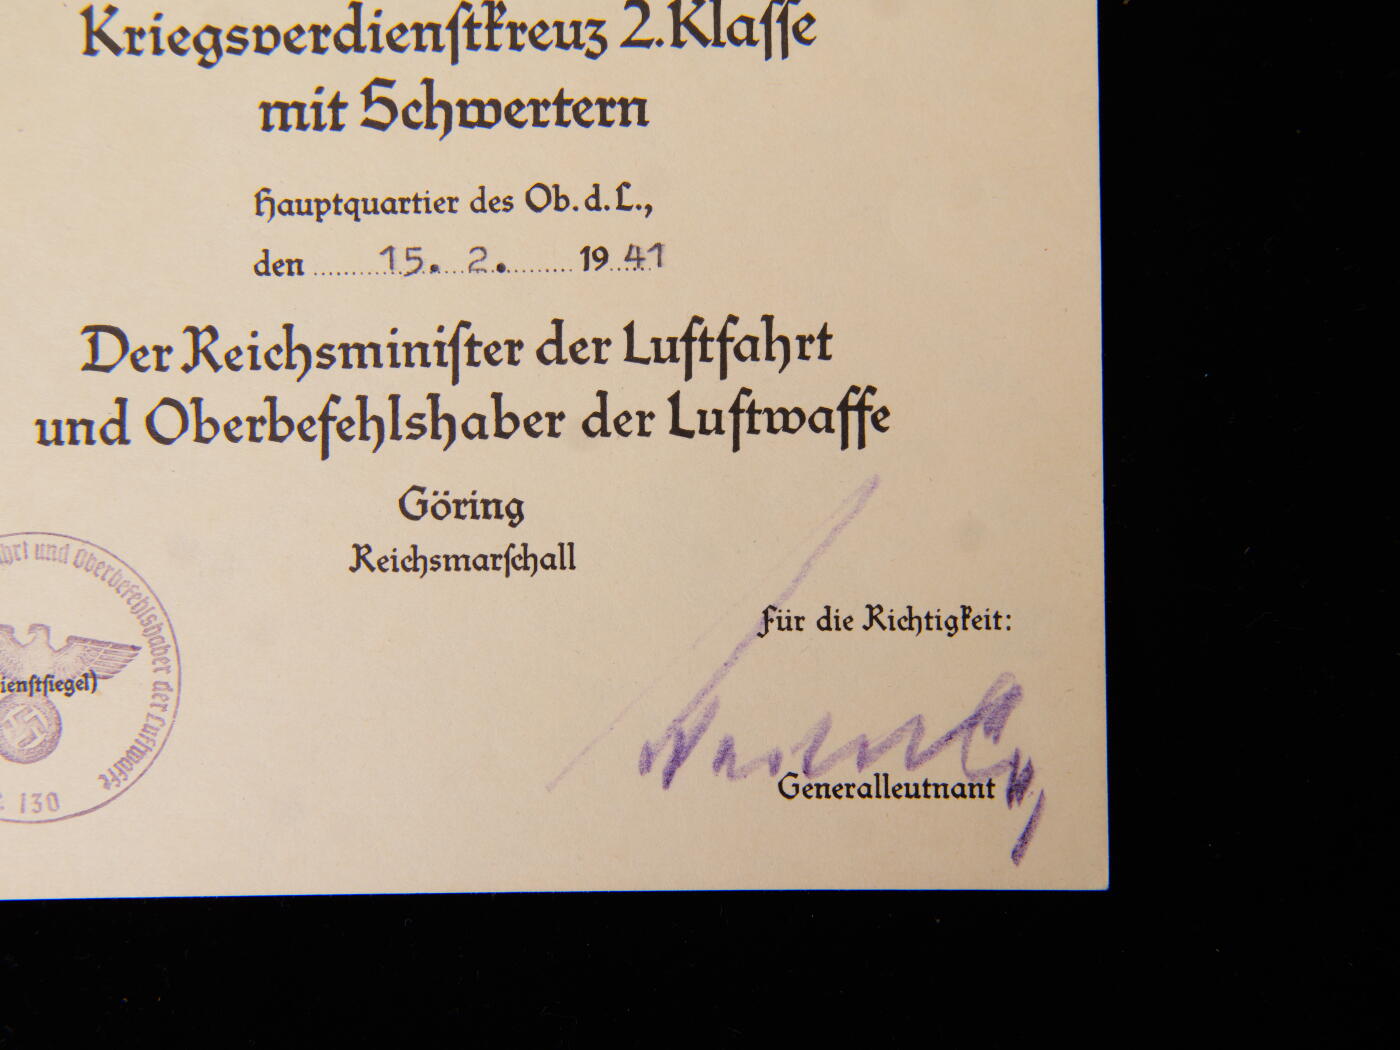 Kriegsverdienstkreuz 2. Klasse
mit Schwertern
Hauptquartier des Ob. d. L.,
den 15. 2. 1941
Der Reichsminister der Luftfahrt
und Oberbefehlshaber der Luftwaffe
Göring
Reichsmarschall
hrt und Oberbefehlshaber der Luftwaffe
ienstsiegel)
130
Für die Richtigkeit:
Generalleutnant